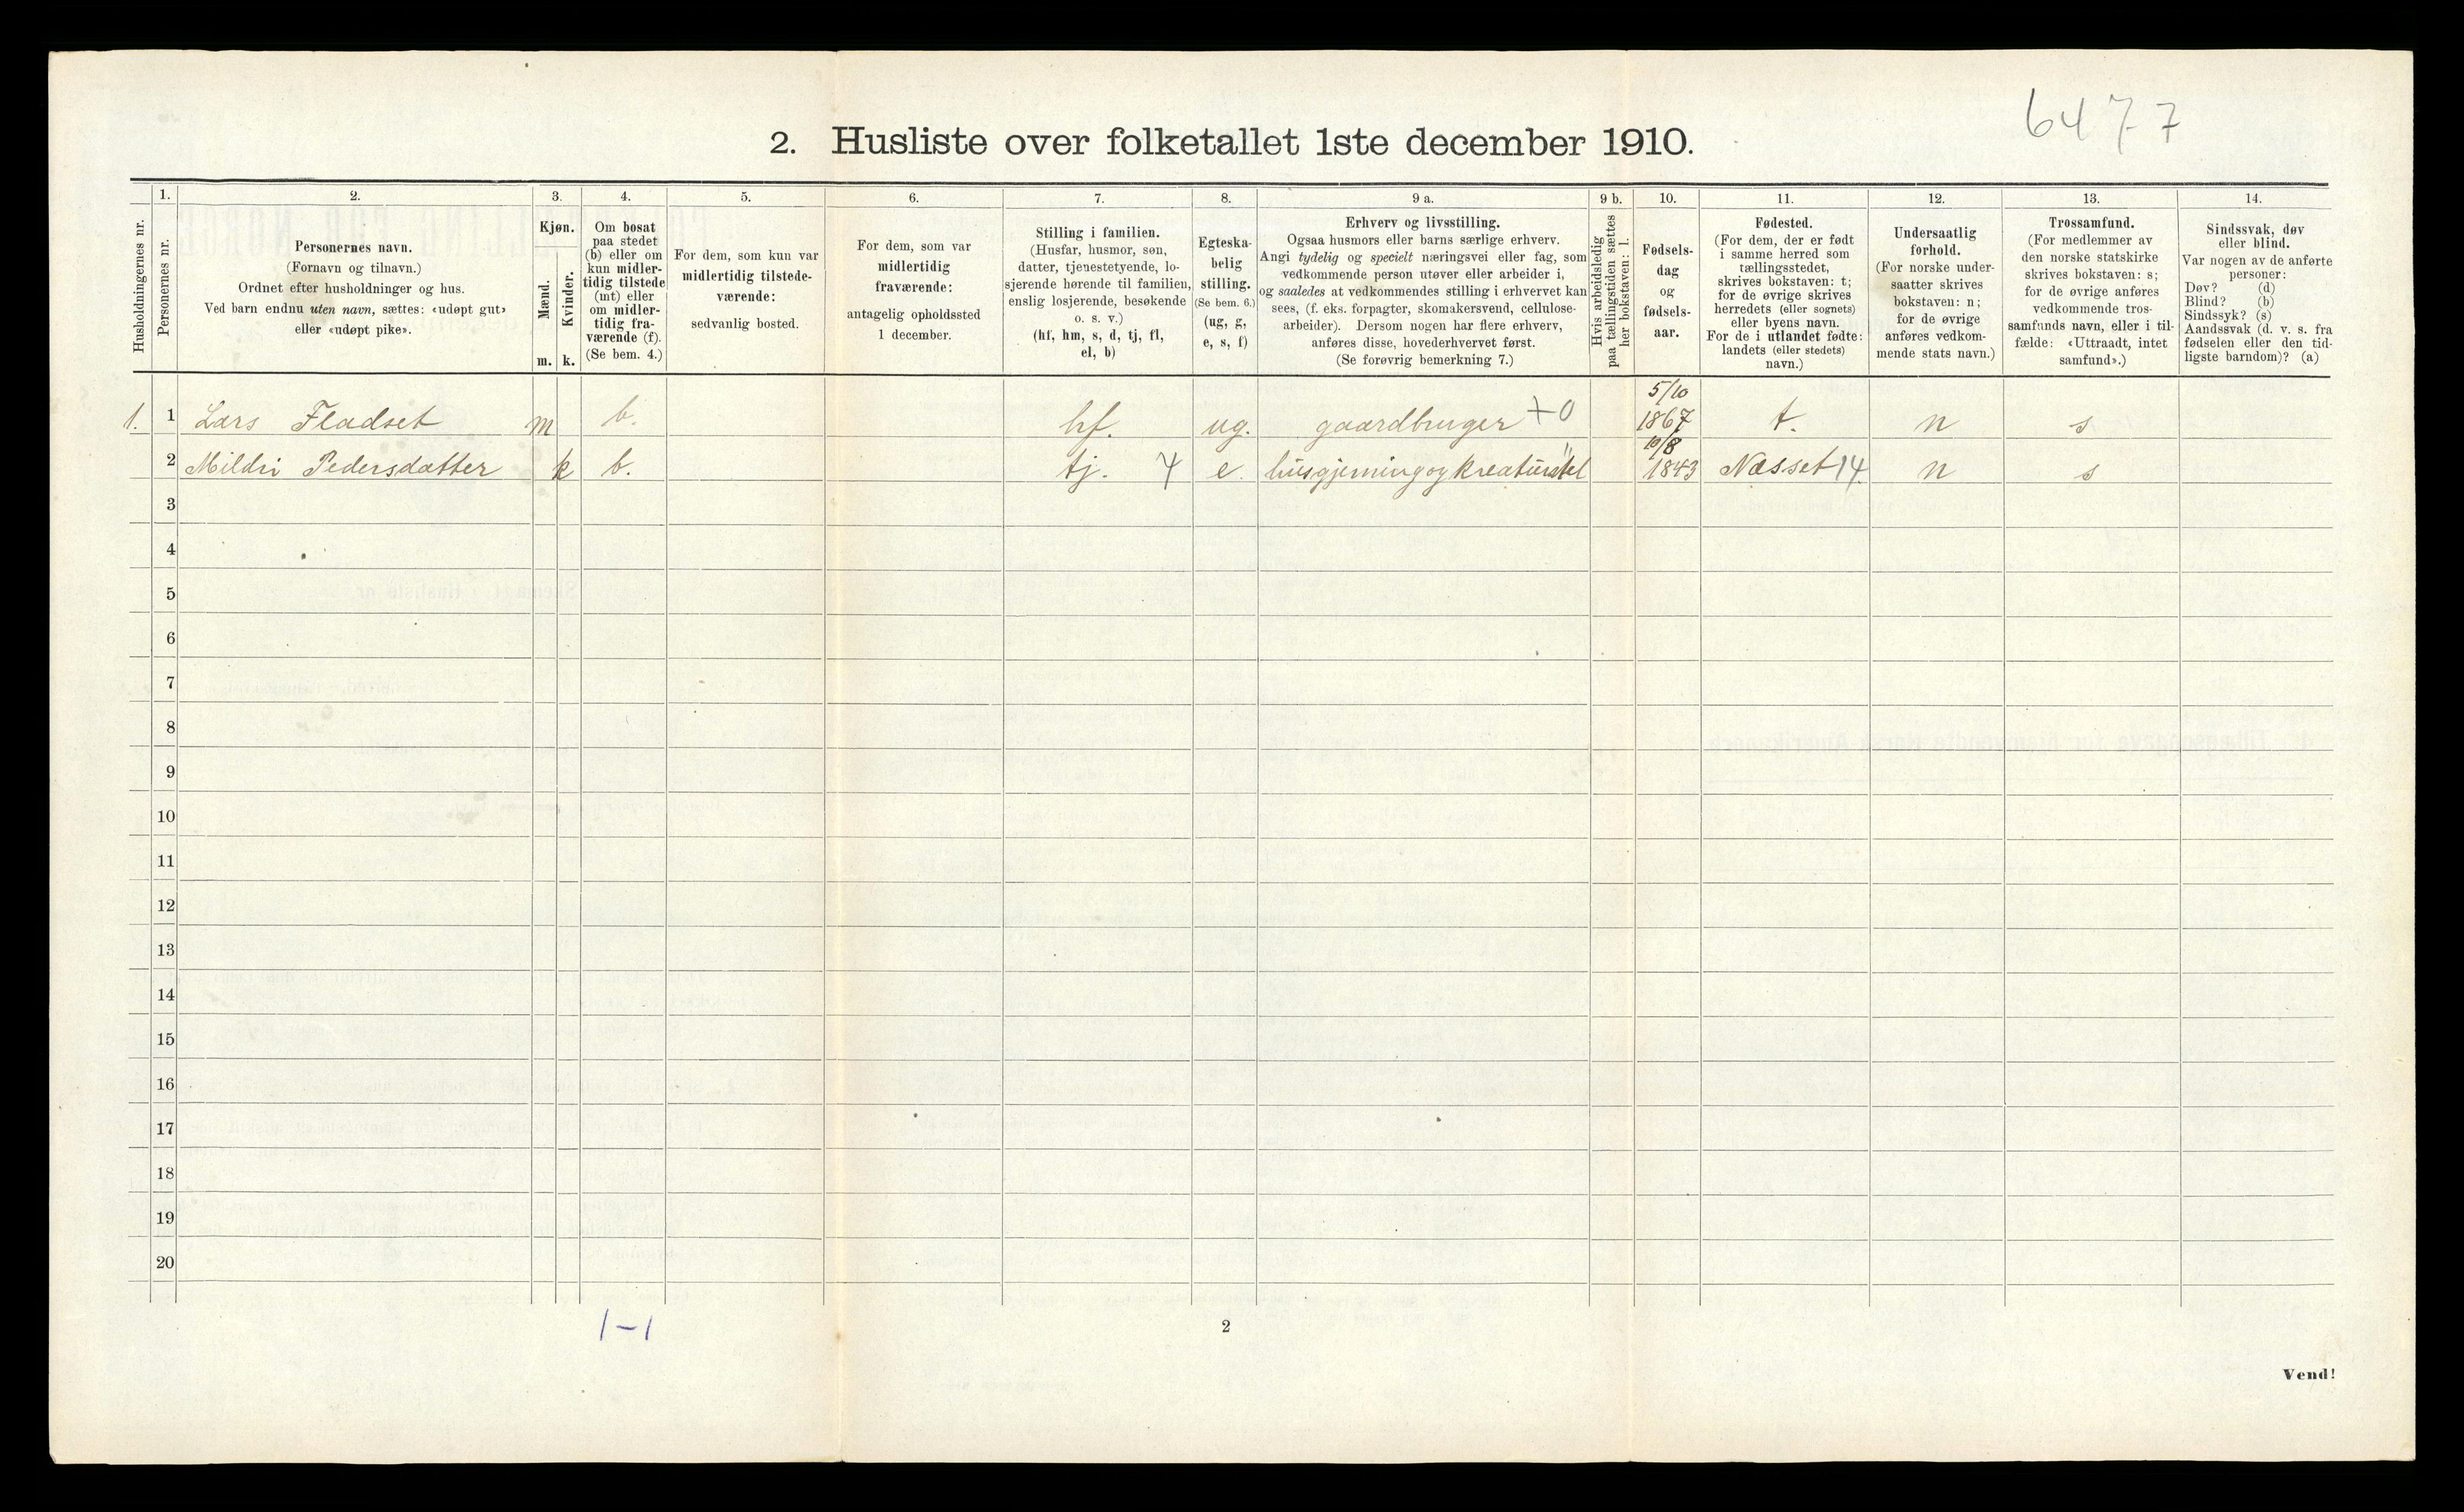 6477
2. Husliste over folketallet 1ste december 1910.
Husholdningernes nr.
1.
Personernes nr.
2.
Personernes navn.
(Fornavn og tilnavn.)
Ordnet efter husholdninger og hus.
Ved barn endnu uten navn, sættes: «udøpt gut»
eller «udøpt pike».
3.
Kjøn.
Mænd.
m.
Kvinder.
k.
4.
Om bosat
paa stedet
(b) eller om
kun midler-
tidig tilstede
(mt) eller
om midler-
tidig fra-
værende (f).
(Se bem. 4.)
5.
For dem, som kun var
midlertidig tilstede-
værende:
sedvanlig bosted.
6.
For dem, som var
midlertidig
fraværende:
antagelig opholdssted
1 december.
7.
Stilling i familien.
(Husfar, husmor, søn,
datter, tjenestetyende, lo-
sjerende hørende til familien,
enslig losjerende, besøkende
o. s. v.)
(hf, hm, s, d, tj, fl,
el, b)
8.
Egteska-
belig
stilling.
(Se bem. 6.)
(ug, g,
e, s, f)
9 a.
Erhverv og livsstilling.
Ogsaa husmors eller barns særlige erhverv.
Angi tydelig og specielt næringsvei eller fag, som
vedkommende person utøver eller arbeider i,
og saaledes at vedkommendes stilling i erhvervet kan
sees, (f. eks. forpagter, skomakersvend, cellulose-
arbeider). Dersom nogen har flere erhverv,
anføres disse, hovederhvervet først.
(Se forøvrig bemerkning 7.)
9 b.
Hvis arbeidsledig
paa tællingstiden sættes
her bokstaven: l.
10.
Fødsels-
dag
og
fødsels-
aar.
11.
Fødested.
(For dem, der er født
i samme herred som
tællingsstedet,
skrives bokstaven: t;
for de øvrige skrives
herredets (eller sognets)
eller byens navn.
For de i utlandet fødte:
landets (eller stedets)
navn.)
12.
Undersaatlig
forhold.
(For norske under-
saatter skrives
bokstaven: n;
for de øvrige
anføres vedkom-
mende stats navn.)
13.
Trossamfund.
(For medlemmer av
den norske statskirke
skrives bokstaven: s;
for de øvrige anføres
vedkommende tros-
samfunds navn, eller i til-
fælde: «Uttraadt, intet
samfund».)
14.
Sindssvak, døv
eller blind.
Var nogen av de anførte
personer:
Døv? (d)
Blind? (b)
Sindssyk? (s)
Aandssvak (d. v. s. fra
fødselen eller den tid-
ligste barndom)? (a)
1. 1 Lars Fladset m b. hf. ug. gaardbruger +0 5/10 1867 t. n s
2 Mildri Pedersdatter k b. tj. 4 e. husgjerning og kreaturstel 10/8 1843 Næsset 14. n s
3
4
5
6
7
8
9
10
11
12
13
14
15
16
17
18
19
20
1-1
2
Vend!